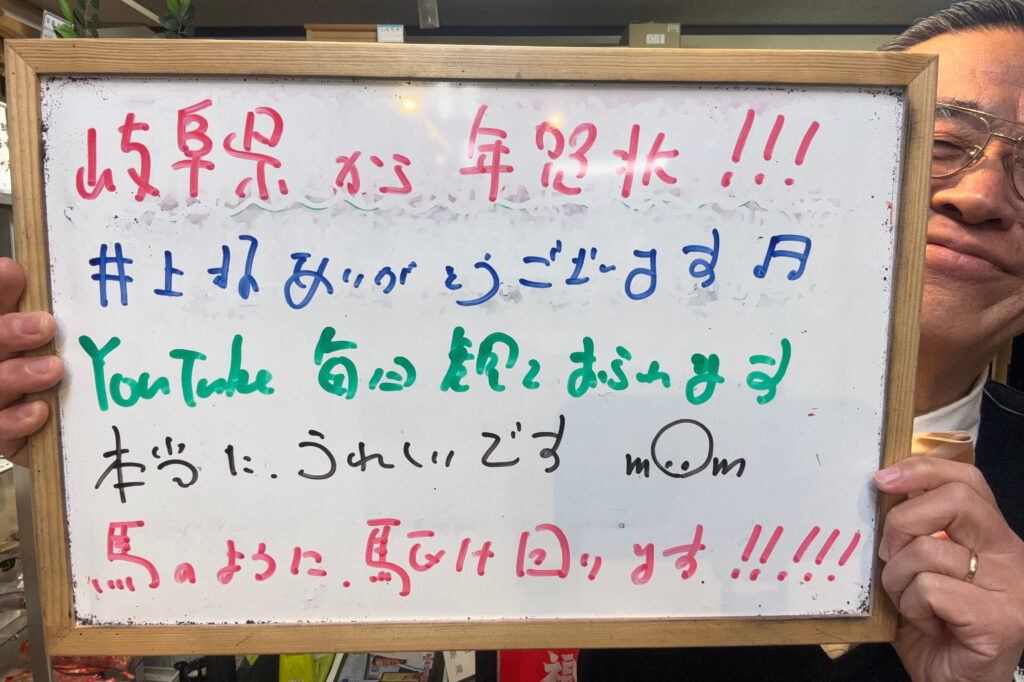 岐阜県から年賀状!!!
井上様ありがとうございます♬
YouTube 毎回観ておられます
本当に、うれしいです m(..)m
馬のように、駆け回ります!!!!!
福